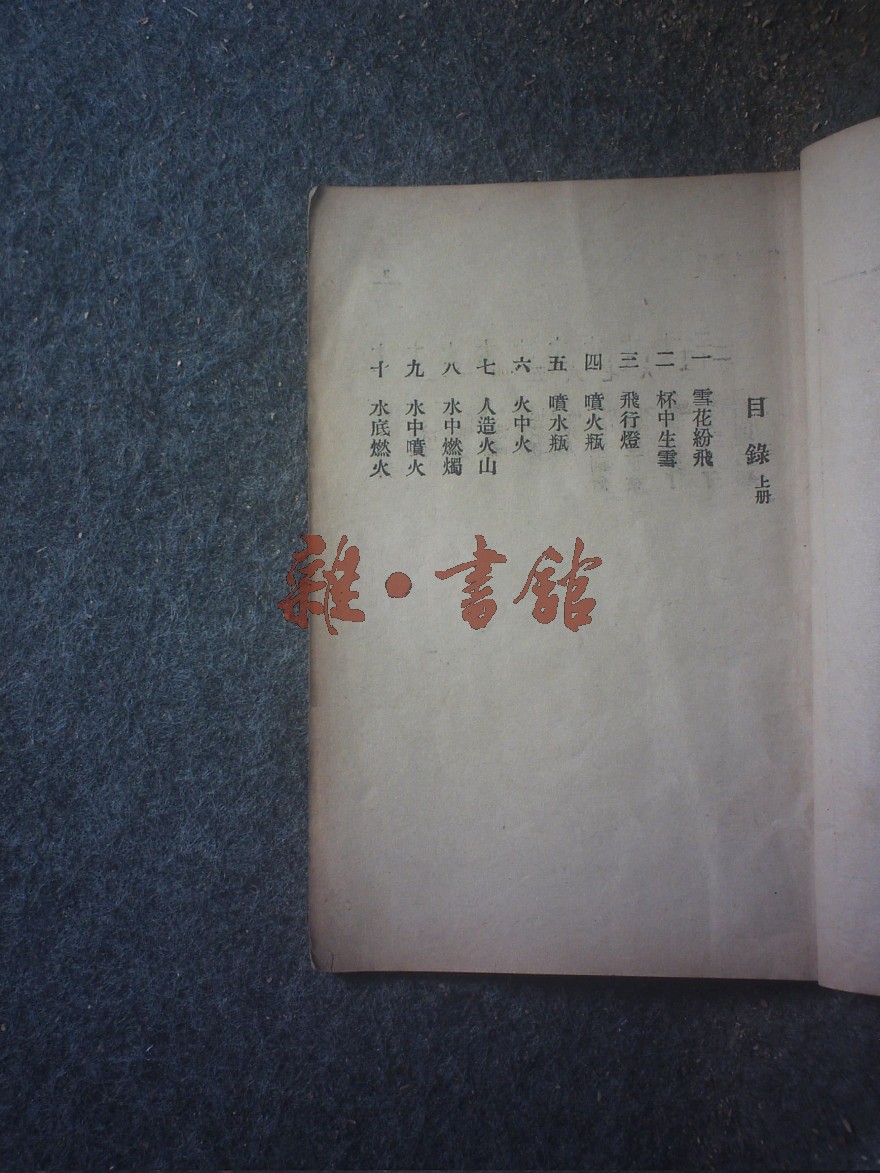 目錄 上册
一 雪花紛飛
二 杯中生雲
三 飛行燈
四 噴火瓶
五 噴水瓶
六 火中火
七 人造火山
八 水中燃燭
九 水中噴火
十 水底燃火
雜·書館